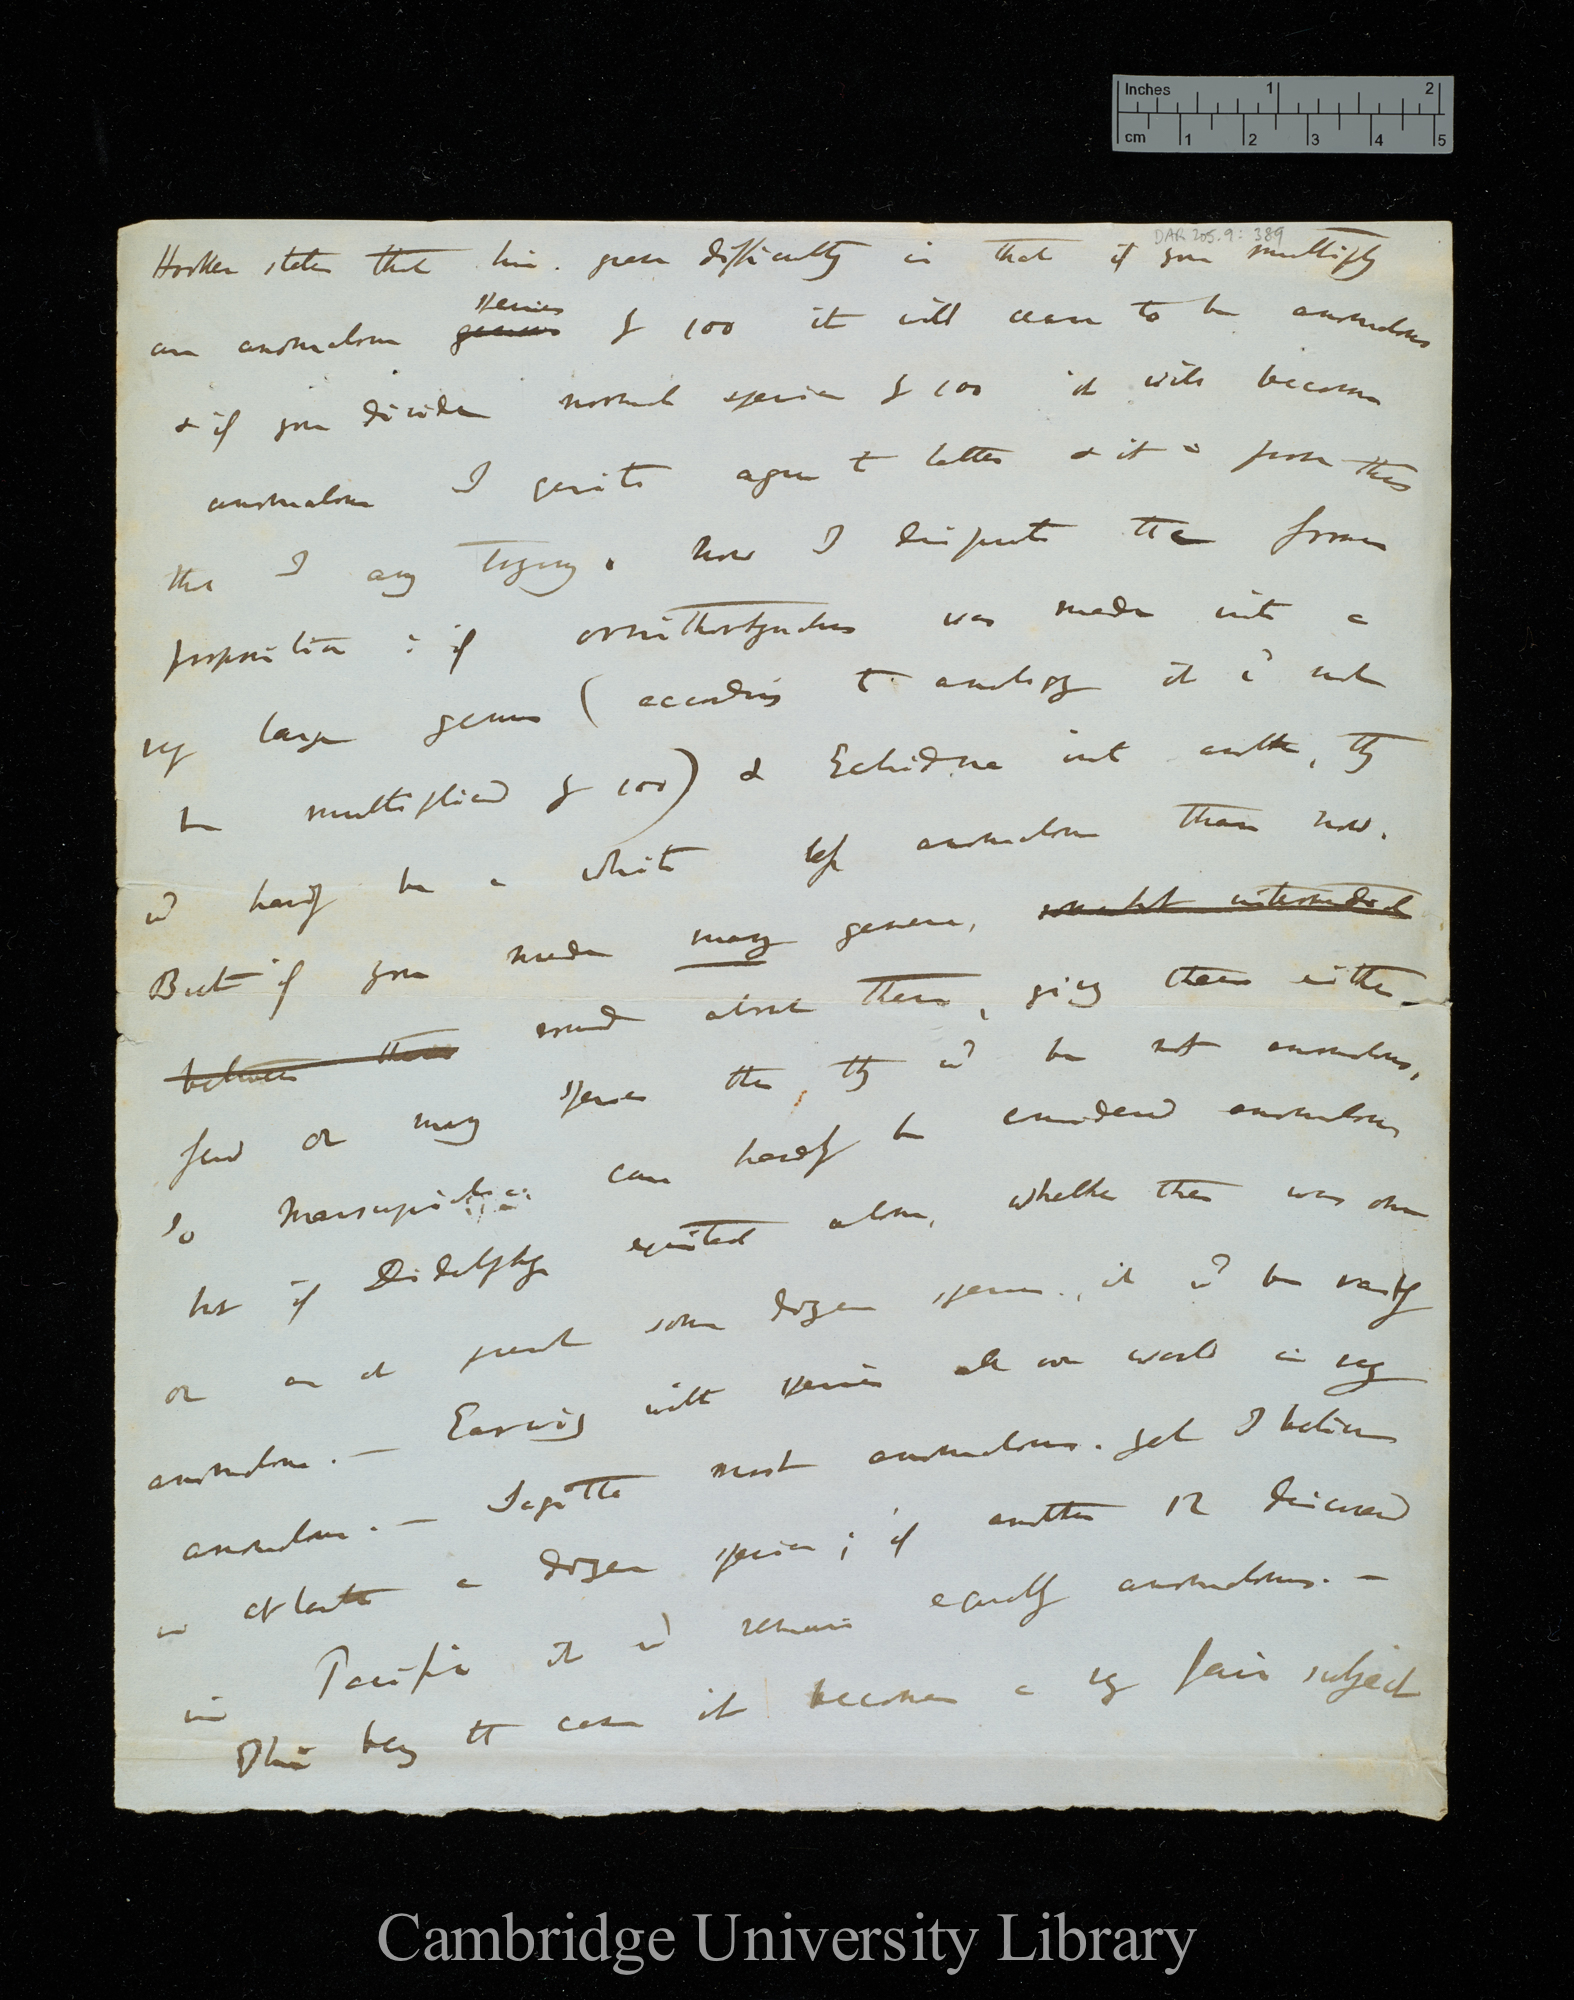 Inches 1 2
cm 1 2 3 4 5
DAR 205.9: 389
Hooker states that his great difficulty is that if you multiply
species
an anomalous genus by 100 it will cease to be anomalous
& if you divide normal species by 100 it will become
anomalous I quite agree to latter & it is from this
that I am arguing. Now I dispute the former
proposition: if ornithorhynchus was made into a
very large genus (according to analogy it wd not
be multiplied by 100) & Echidna into another, they
wd hardly be a white less anomalous than now.
But if you made many genera, somewhat intermediate
between them round about them, giving them either
few or many species then they wd be not anomalous,
so Marsupialia can hardly be considered anomalous
but if Didelphys existed alone, whether there was one
or as at present some dozen species, it wd be vastly
anomalous. — Earwig with species all over world is very
anomalous. — Sagitta most anomalous. yet I believe
in Atlantic a dozen species; if another 12 discovered
in Pacific it wd remain equally anomalous. —
This being the case it becomes a very fair subject
Cambridge University Library